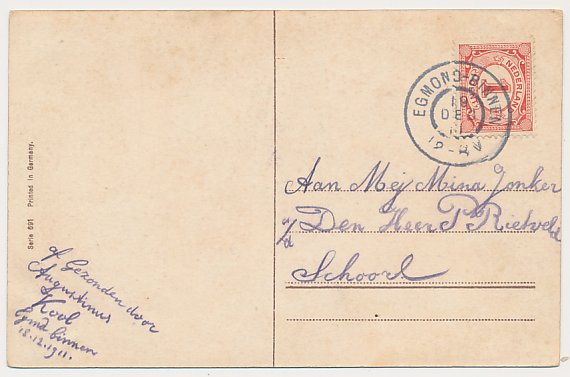 Serie 691 Printed in Germany.
NEDERLAND
1
EGMOND-BINNEN
19
DEC
12-8V
Aan Mej Mina Jonker
a/d Den Heer P Rietveld
Schoorl
af Gezonden door
Augustinus
Kool
Egmd binnen
18.12.1911.